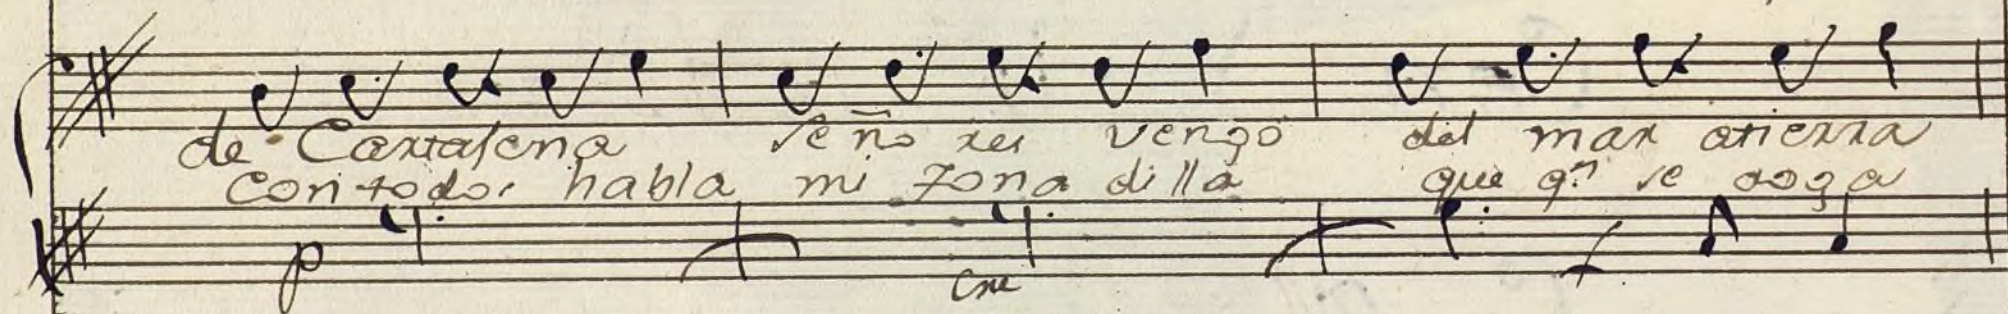 de Cartajena señores vengo del mar atierra
con todos habla mi tonadilla que qⁿ se aoga
p cre